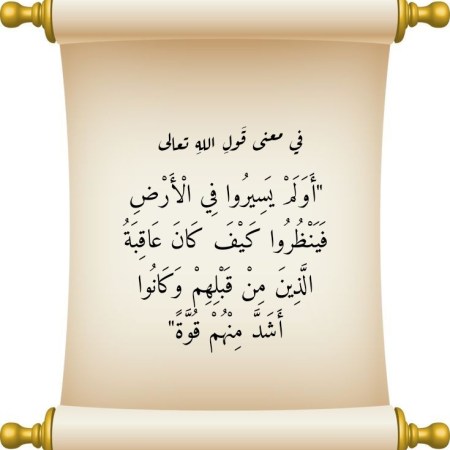 في معنى قَولِ اللهِ تعالى
"أَوَلَمْ يَسِيرُوا فِي الْأَرْضِ
فَيَنْظُرُوا كَيْفَ كَانَ عَاقِبَةُ
الَّذِينَ مِنْ قَبْلِهِمْ وَكَانُوا
أَشَدَّ مِنْهُمْ قُوَّةً"